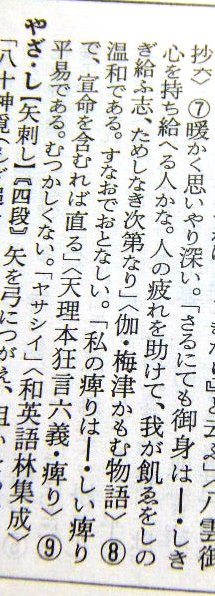 抄六〉⑦暖かく思いやり深い。「さるにても御身は―・しき
心を持ち給へる人かな。人の疲れを助けて、我が飢ゑをしの
ぎ給ふ志、ためしなき次第なり」〈伽・梅津かもむ物語〉⑧
温和である。すなおでおとなしい。「私の痺りは―・しい痺り
で、宣命を含むれば直る」〈天理本狂言六義・痺り〉⑨
平易である。むつかしくない。「ヤサシイ」〈和英語林集成〉
やざ・し【矢刺し】〘四段〙矢を弓につがえ、